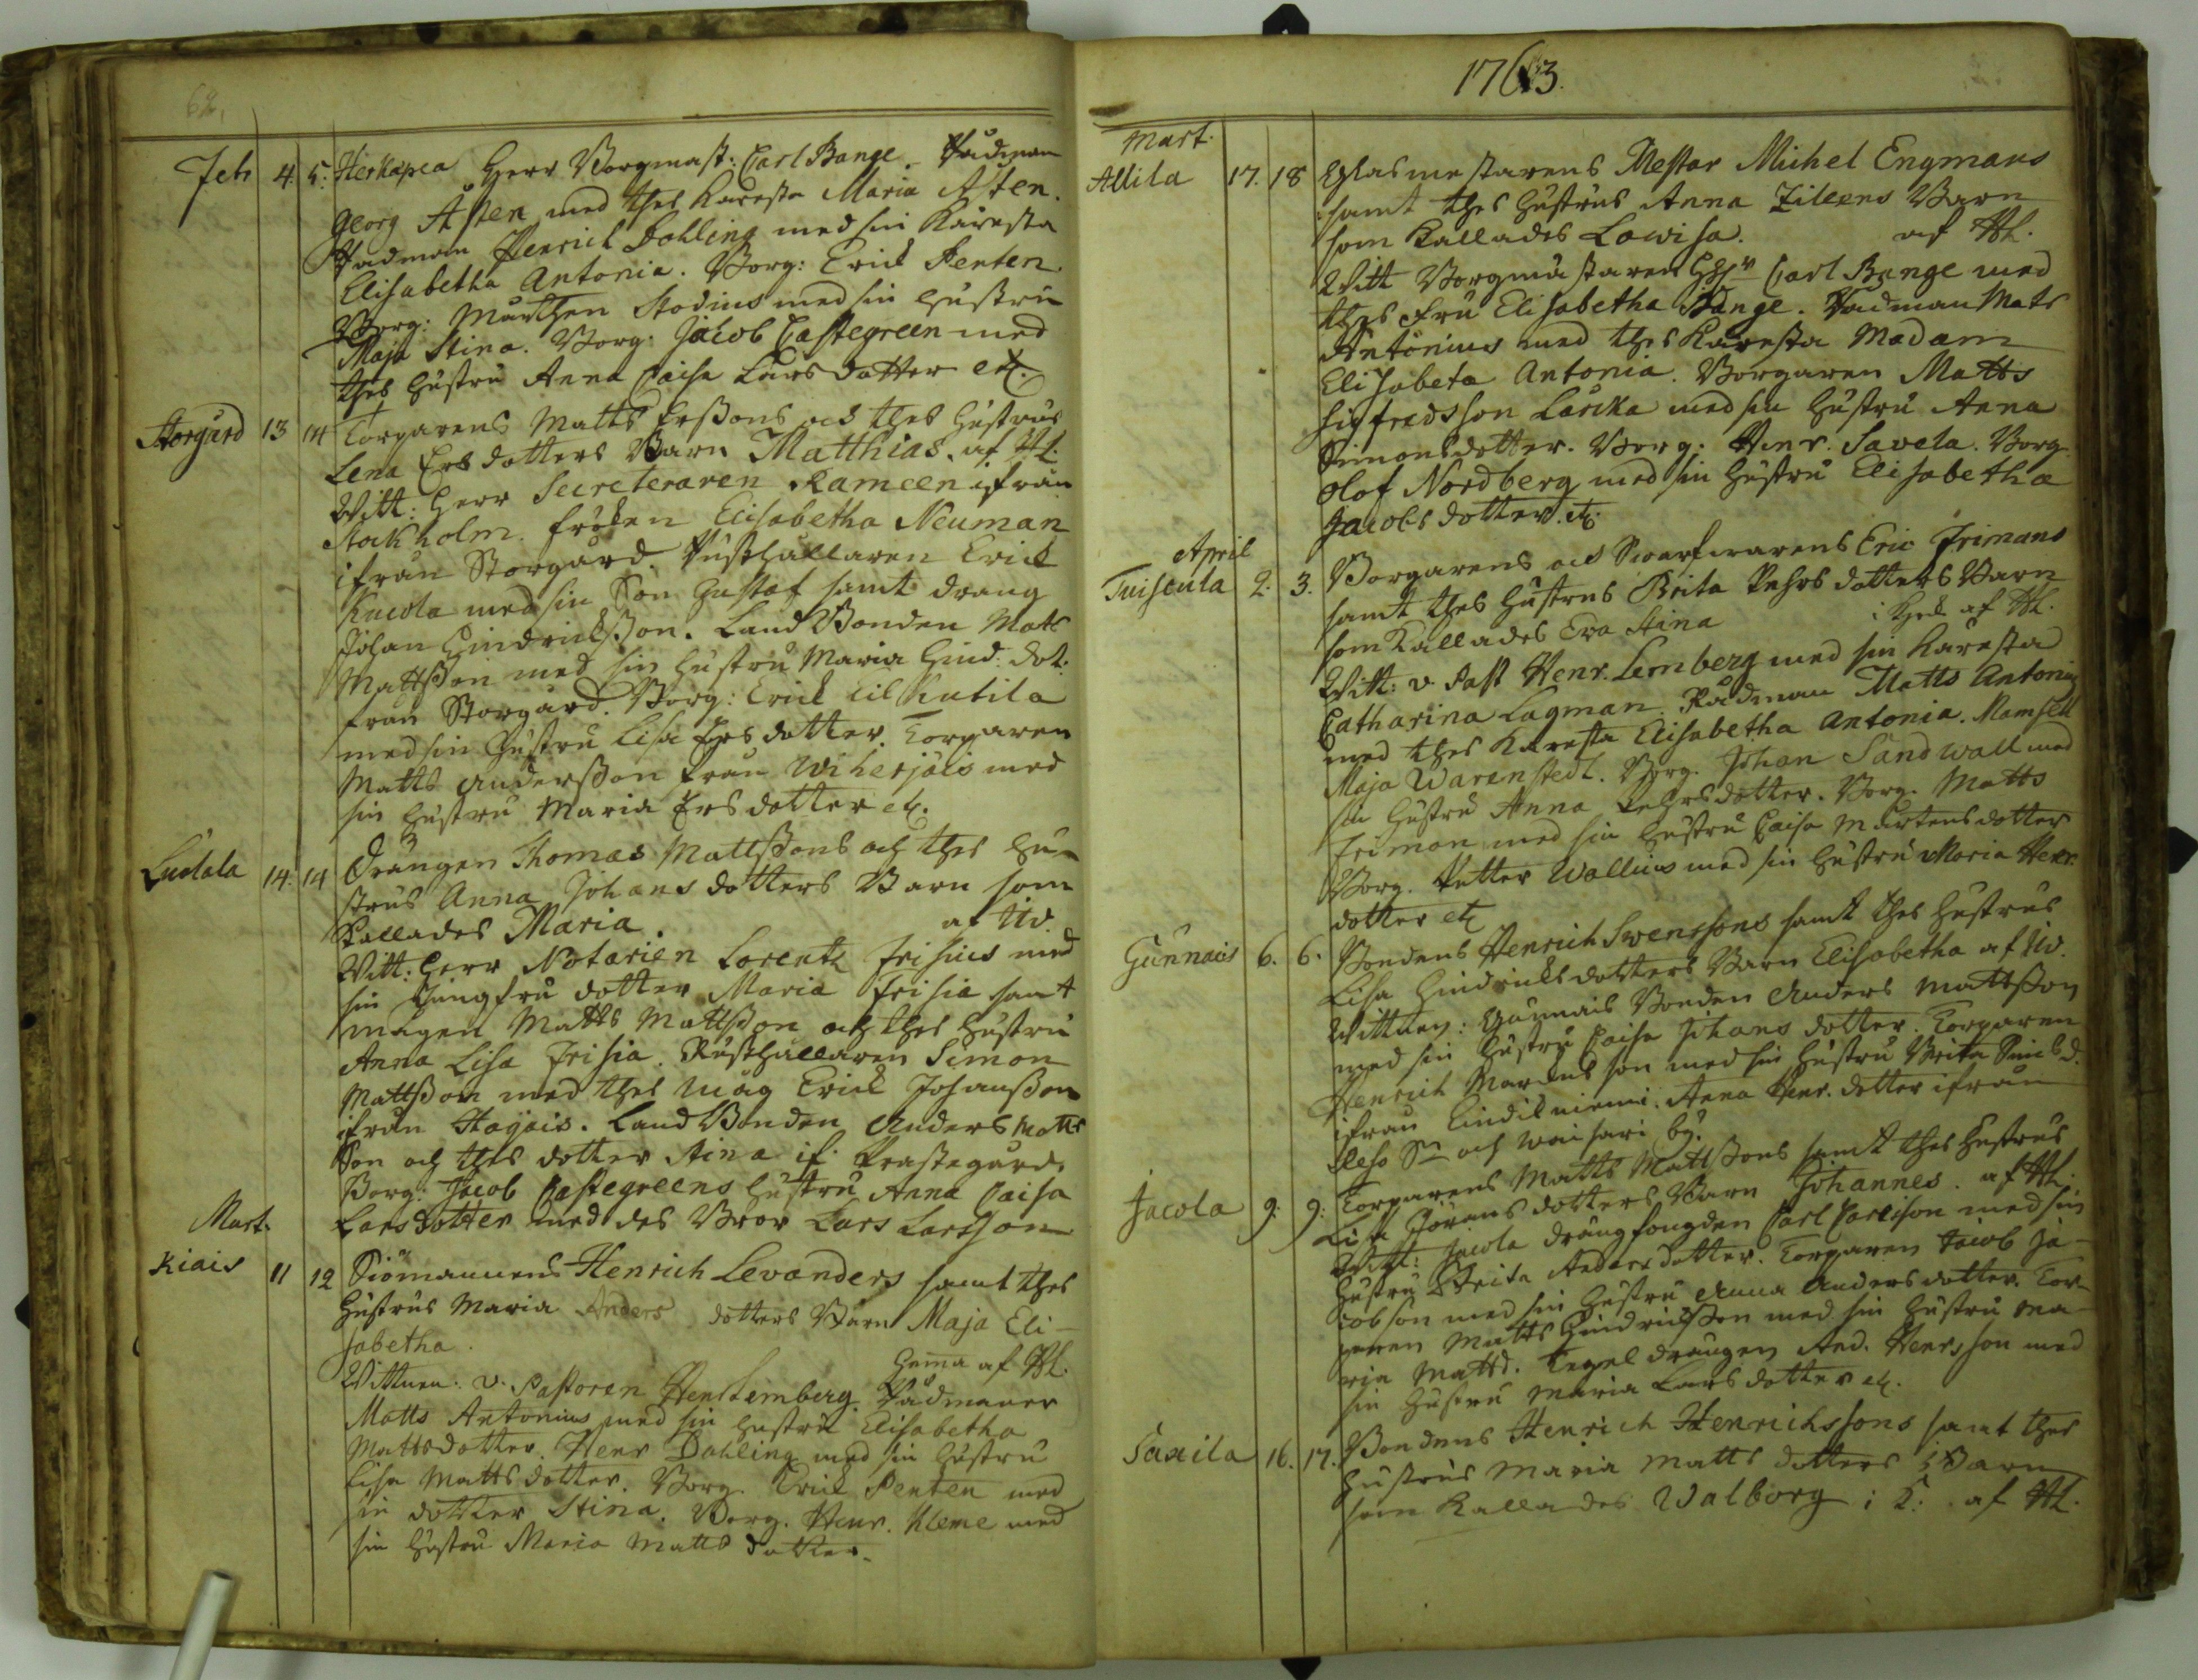 62.
Feb 4. 5. Herkäpeä Herr Borgmäst: Carl Bange. Rådman
Georg Åsten med thes Käresta Maria Åsten.
Rådman Henrich Dahling med sin Käresta
Elisabetha Antonia. Borg: Erich Penten.
Borg: Mårthen Stodius med sin hustru
Maja Stina. Borg. Jacob Castegreen med
thes hustru Anna Caisa Lars dotter etc.
Storgård 13 14 Torparens Matts Ersons och thes hustrus
Lena Ersdotters Barn Matthias. af HL.
Witt: Herr Secreteraren Rameen ifrån
Stockholm. fröken Elisabetha Neuman
ifrån Storgård. Rusthållaren Erich
Kucola med sin Son Gustaf samt dräng
Johan Hindrichsson. Land Bonden Matts
Mattsson med sin hustru Maria Hind: dot:
från Storgård. Borg: Erich Lilkutila
med sin hustru Lisa Ersdotter. Torparen
Matts Andersson från Wiherjois med
sin hustru Maria Ersdotter etc.
Luciala 14. 14 Drängen Thomas Mattssons och thes hu-
strus Anna Johans dotters Barn som
Kallades Maria. af UW.
Witt: Herr Notarien Lorentz Frisius med
sin Jungfru dotter Maria Frisia samt
mågen Matts Mattsson och thes hustru
Anna Lisa Frisia. Rusthållaren Simon
Mattsson med thes Måg Erich Johansson
ifrån Stojois. Land Bonden Anders Matts
Son och thes dotter Stina if. Prästegård.
Borg: Jacob Castegreens hustru Anna Caisa
Larsdotter med des Bror Lars Larsson
Mart.
Kiais 11 12 Siömannens Henrich Levanders samt thes
hustrus Maria Anders dotters Barn Maja Eli-
sabetha.
Hema af HL.
Wittnen. v. Pastoren Hen Lemberg. Rådmaner
Matts Antonius med sin hustru Elisabetha
Mattsdotter. Henr Dahling med sin hustru
Lisa Matts dotter. Borg. Erich Penten med
sin dotter Stina. Borg. Henr. Kleme med
sin hustru Maria Matts dotter.
1763.
Mart.
Attila 17. 18 Glasmestarens Mestar Michel Engmans
samt thes hustrus Anna Zileens Barn
som Kallades Lowisa. af HL.
Witt Borgmästaren Carl Bange med
thes Fru Elisabetha Bange. Rådman Mats
Antonius med thes Käresta Madam
Elisabeta Antonia. Borgaren Matts
Sigfredsson Larcka med sin hustru Anna
Simonsdotter. Borg: Henr. Savela. Borg
Olof Nordberg med sin hustru Elisabetha
Jacobs dotter. etc.
April
Tuiscula 2. 3. Borgarens och Swarfwarens Eric Frimans
samt thes hustrus Brita Pehrs dotters Barn
som Kallades Eva Stina i Kyrk af HL.
Witt: v. Past Henr. Lemberg med sin Käresta
Catharina Lagman. Rådman Matts Antonius
med thes Käresta Elisabetha Antonia. Mamsell
Maja Warenstedt. Borg. Johan Sandwall med
sin hustru Anna Pehrsdotter. Borg. Matts
Friman med sin hustru Caisa Mårtensdotter
Borg. Petter Wallius med sin hustru Maria Henr.
dotter etc
Gunnais 6. 6. Bondens Henrich Swenssons samt thes hustrus
Lisa Hindrichsdotters Barn Elisabetha af UW.
Wittnen: Gunnais Bonden Anders Mattsson
med sin hustru Caisa Johans dotter. Torparen
Henrich Marcusson med sin hustru Brita Simsd.
ifrån Lindikniemi. Anna Henr. dotter ifrån
och Waisari by.
Jacola 9. 9: Torparens Matts Mattssons samt thes hustrus
Lisa Jörans dotters Barn Johannes. af HL.
Witt: Jacola drängfougden Carl Carlsson med sin
hustru Brita Andersdotter. Torparen Jacob Ja-
cobson med sin hustru Anna Andersdotter. Tor-
paren Matts Hindrichsson med sin hustru Ma-
ria Mattsd. Tegel drängen And. Henrsson med
sin hustru Maria Larsdotter etc.
Saxila 16. 17. Bondens Henrich Henrichssons samt thes
hustrus Maria Matts dotters Barn
som Kallades Walborg i K. af HL.